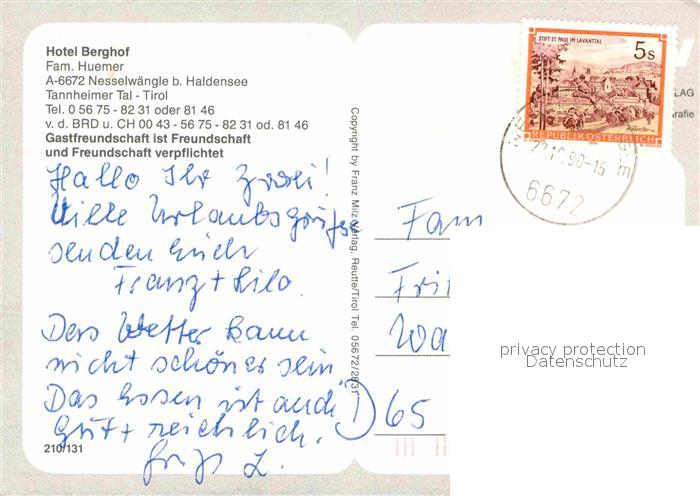 Hotel Berghof
Fam. Huemer
A-6672 Nesselwängle b. Haldensee
Tannheimer Tal - Tirol
Tel. 0 56 75 - 82 31 oder 81 46
v. d. BRD u. CH 00 43 - 56 75 - 82 31 od. 81 46
Gastfreundschaft ist Freundschaft
und Freundschaft verpflichtet
Hallo Ihr zwei!
Viele Urlaubsgrüsse
senden Euch
Franz + Lilo.
Das Wetter kann
nicht schöner sein
Das Essen ist auch
gut + reichlich.
L.
210/131
Copyright by Franz Milz Verlag, Reutte/Tirol Tel. 05672/2631
STIFT ST. PAUL IM LAVANTTAL
5s
REPUBLIK ÖSTERREICH
90-15
6672
LAG
rafie
Fam
Fri
Wa
D 65
privacy protection
Datenschutz